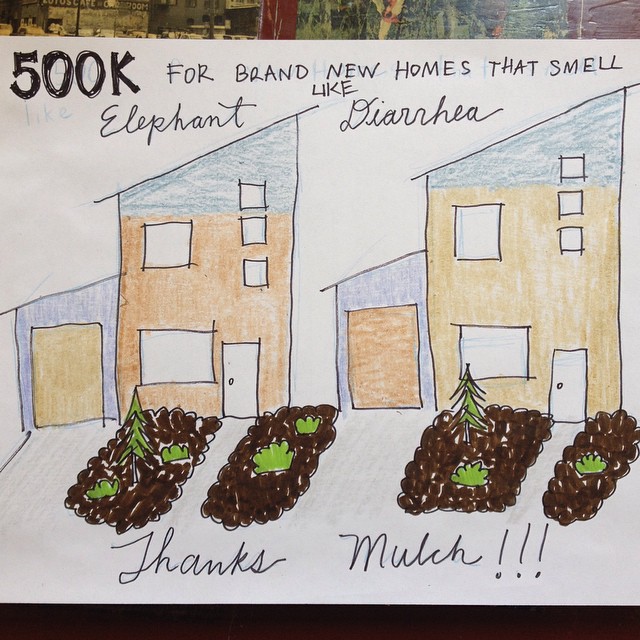 500K FOR BRAND NEW HOMES THAT SMELL
LIKE
Elephant Diarrhea
Thanks Mulch!!!